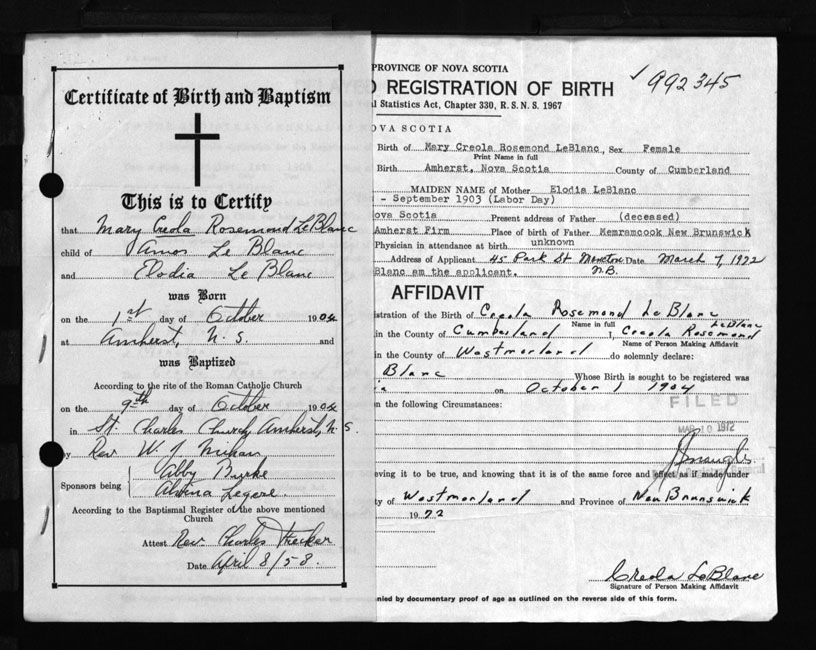 Certificate of Birth and Baptism
This is to Certify
that Mary Creola Rosemond LeBlanc
child of Amos Le Blanc
and Elodia Le Blanc
was Born
on the 1st day of October 1904
at Amherst, N.S. and
was Baptized
According to the rite of the Roman Catholic Church
on the 9th day of October 1904
in St. Charles Church, Amherst, N.S.
by Rev W. J. Mihan
Sponsors being Abby Burke
Alvina Legere.
According to the Baptismal Register of the above mentioned
Church
Attest Rev. Charles
Date April 8/58.
PROVINCE OF NOVA SCOTIA
D REGISTRATION OF BIRTH
✓992345
l Statistics Act, Chapter 330, R.S.N.S. 1967
NOVA SCOTIA
Birth of Mary Creola Rosemond LeBlanc, Sex Female
Print Name in full
Birth Amherst, Nova Scotia County of Cumberland
MAIDEN NAME of Mother Elodia LeBlanc
- September 1903 (Labor Day)
ova Scotia Present address of Father (deceased)
Amherst Firm Place of birth of Father Memramcook New Brunswick
Physician in attendance at birth unknown
Address of Applicant 45 Park St Moncton Date March 7, 1972
N.B.
Blanc am the applicant.
AFFIDAVIT
istration of the Birth of Creola Rosemond Le Blanc
Name in full LeBlanc
in the County of Cumberland I, Creola Rosemond
Name of Person Making Affidavit
in the County of Westmorland do solemnly declare:
Blanc Whose Birth is sought to be registered was
ia on October 1 1904
on the following Circumstances:
FILED
MAR 10 1972
eving it to be true, and knowing that it is of the same force and effect as if made under
ty of Westmorland and Province of New Brunswick
1972
Creola LeBlanc
Signature of Person Making Affidavit
nied by documentary proof of age as outlined on the reverse side of this form.